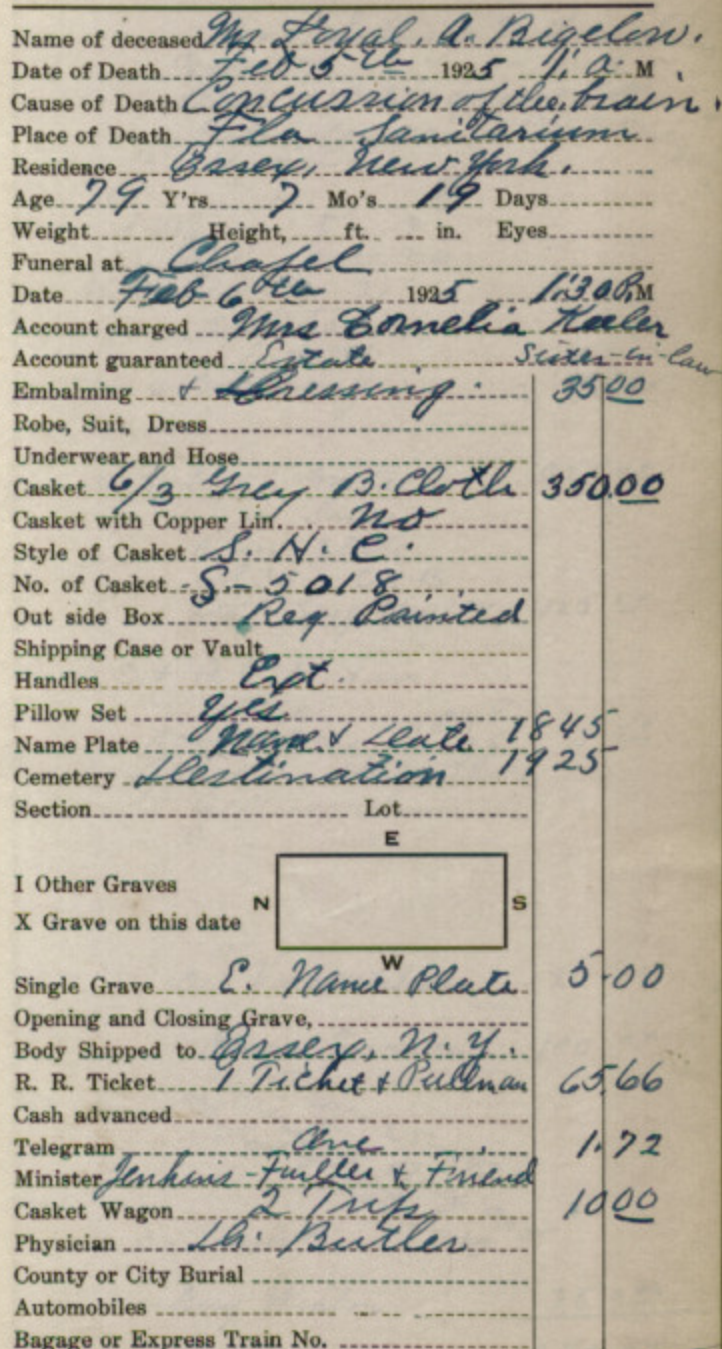 Name of deceased Mr Loyal. A. Bigelow.
Date of Death Feb 5th 1925 1. a. M.
Cause of Death Concussion of the brain.
Place of Death Fla Sanitarium
Residence Essex, New York.
Age 79 Y'rs 7 Mo's 19 Days
Weight Height, ft. in. Eyes
Funeral at Chapel
Date Feb 6th 1925 1:30 P.M
Account charged Mrs Cornelia
Account guaranteed Estate Sister-in-law
Embalming & Dressing. 35 00
Robe, Suit, Dress
Underwear and Hose
Casket 6/3 Grey B. Cloth 350.00
Casket with Copper Lin. No
Style of Casket S. H. C.
No. of Casket S-5018
Out side Box Reg Painted
Shipping Case or Vault
Handles Ext.
Pillow Set Yes
Name Plate Name & Date 1845
Cemetery Destination 1925
Section Lot
E
I Other Graves
N S
X Grave on this date
W
Single Grave E. Name Plate 5.00
Opening and Closing Grave,
Body Shipped to Essex, N.Y.
R. R. Ticket 1 Ticket & Pullman 65.66
Cash advanced
Telegram One 1.72
Minister Jenkins-Fuller & Friend
Casket Wagon 2 Trips 10 00
Physician Dr. Butler
County or City Burial
Automobiles
Bagage or Express Train No.